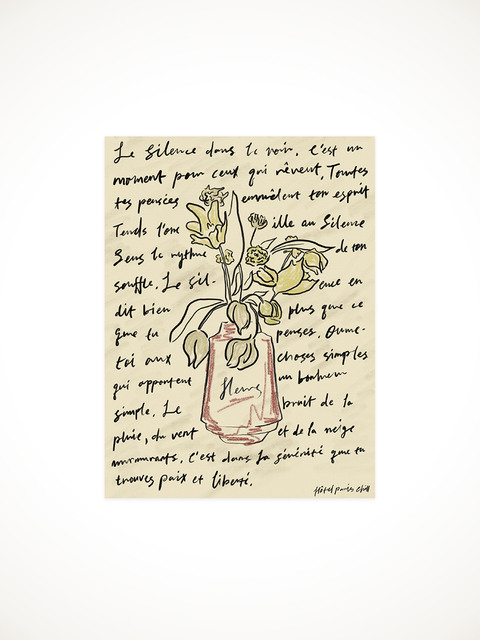 Le Silence dans le noir. C'est un
moment pour ceux qui rêvent, Toutes
tes pensées emmêlent ton esprit
Tends l'ore ille au Silence
Sens le rythme de ton
souffle. Le Sil- ence en
dit bien plus que ce
que tu penses. Ouvre-
toi aux choses simples
qui apportent un bonheur
simple. Le bruit de la
fleurs
pluie, du vent et de la neige
murmurants. C'est dans la sérénité que tu
trouves paix et liberté.
Hôtel paris chill